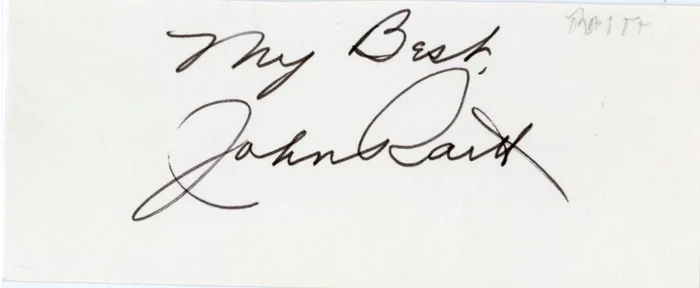 RAITT
My Best,
John Raitt